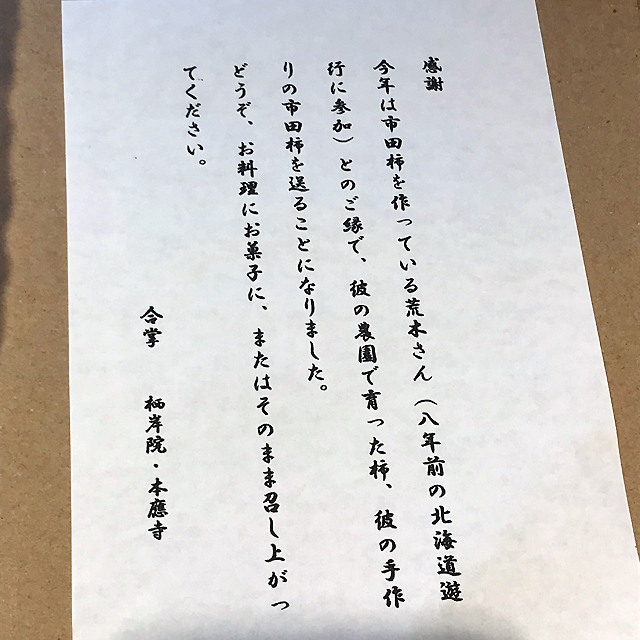 感謝
今年は市田柿を作っている荒木さん（八年前の北海道遊
行に参加）とのご縁で、彼の農園で育った柿、彼の手作
りの市田柿を送ることになりました。
どうぞ、お料理にお菓子に、またはそのまま召し上がっ
てください。
合掌　栖岸院・本應寺